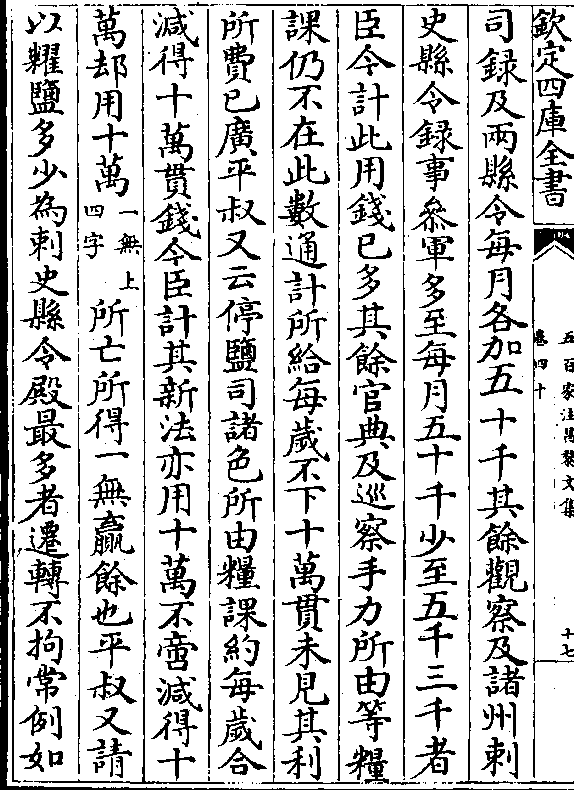 欽定四庫全書
五百家注昌黎文集
卷四十
十七
司録及兩縣令每月各加五十千其餘觀察及諸州刺
史縣令録事叅軍多至每月五十千少至五千三千者
臣今計此用錢已多其餘官典及巡察手力所由等糧
課仍不在此數通計所給每歲不下十萬貫未見其利
所費已廣平叔又云停鹽司諸色所由糧課約每歲合
減得十萬貫錢今臣計其新法亦用十萬不啻減得十
萬却用十萬一無上四字所亡所得一無贏餘也平叔又請
以糶鹽多少為刺史縣令殿最多者遷轉不拘常例如